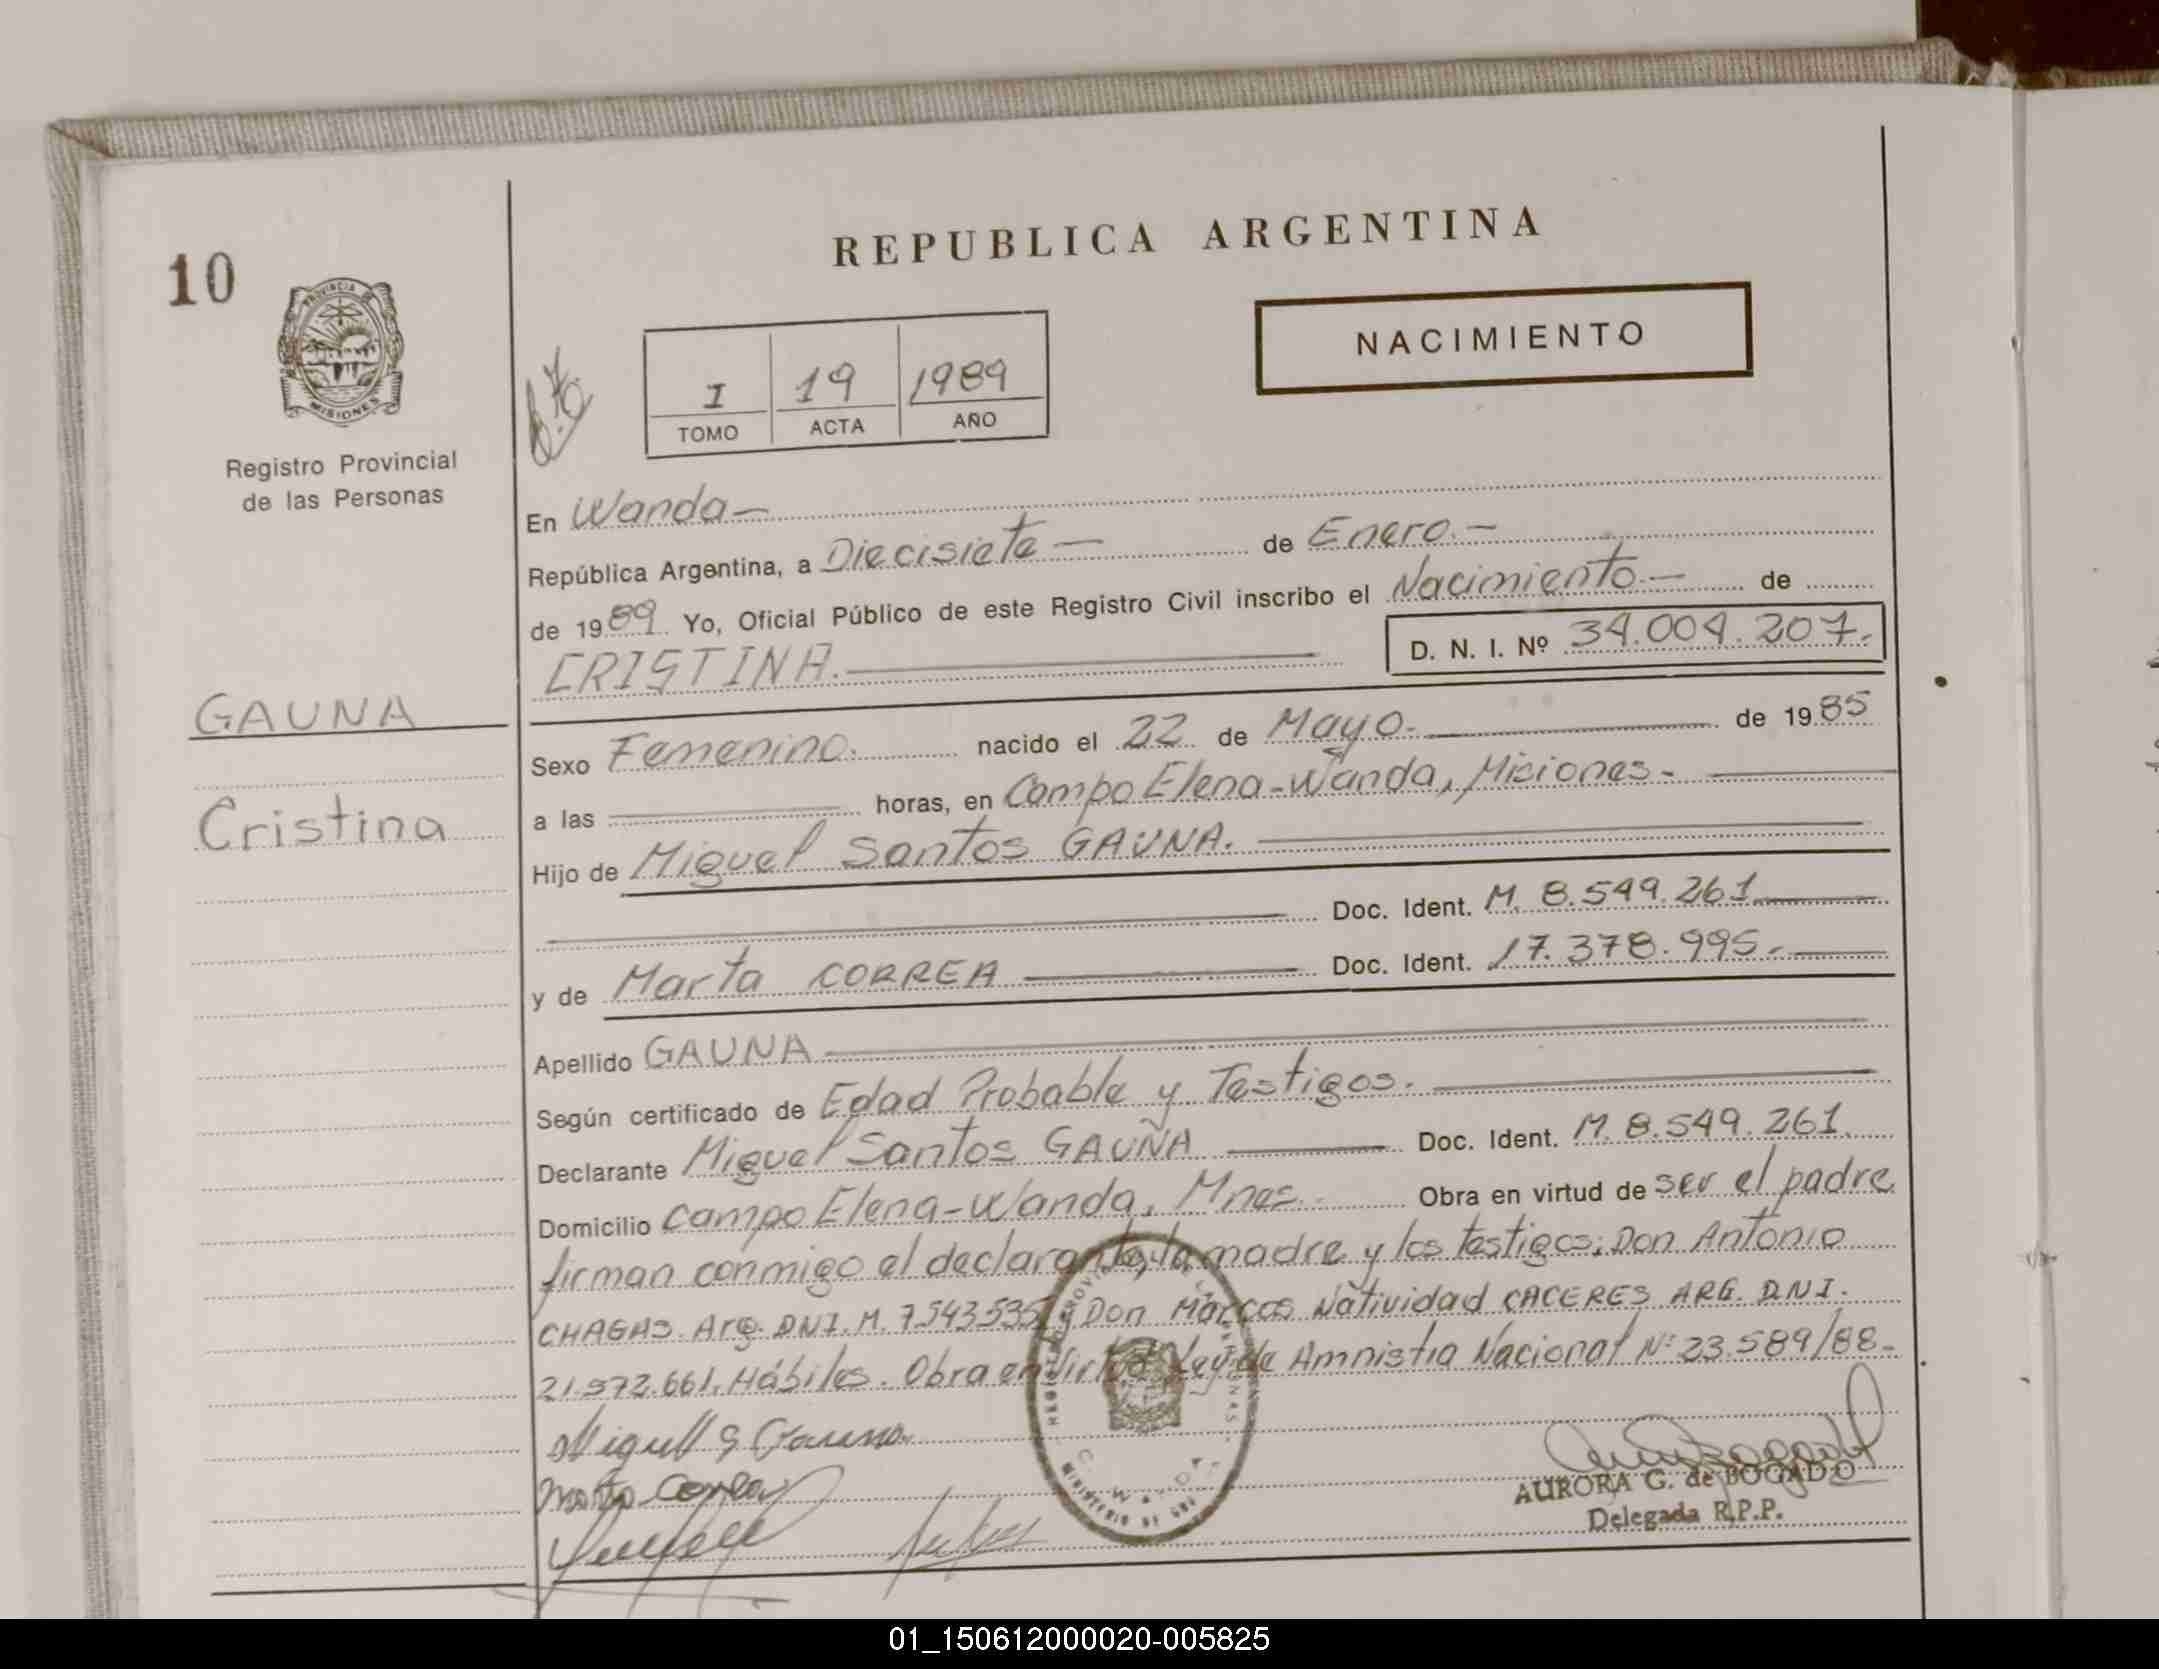 REPUBLICA ARGENTINA
10
PROVINCIA DE
MISIONES
NACIMIENTO
I 19 1989
TOMO ACTA AÑO
Registro Provincial
de las Personas
En Wanda-
República Argentina, a Diecisiete - de Enero.-
de 1989. Yo, Oficial Público de este Registro Civil inscribo el Nacimiento.- de
CRISTINA. D. N. I. Nº 34.004.207.
GAUNA
Sexo Femenino. nacido el 22 de Mayo. de 1985
a las horas, en Campo Elena-Wanda, Misiones-
Cristina
Hijo de Miguel Santos GAUNA.
Doc. Ident. M. 8.549.261
y de Marta CORREA Doc. Ident. 17.378.995.
Apellido GAUNA
Según certificado de Edad Probable y Testigos.
Declarante Miguel Santos GAUÑA Doc. Ident. M. 8.549.261.
Domicilio Campo Elena-Wanda, Mnes. Obra en virtud de ser el padre
firman conmigo el declarante, la madre y los testigos; Don Antonio
CHAGAS. Arg. DNI. M. 7.543.535 y Don Marcos Natividad CACERES ARG. D.N.I.
21.972.661. Hábiles. Obra en Virtud Ley de Amnistia Nacional Nº 23.589/88-
Miguel S Gauna
Marta Correa
AURORA G. de BOGADO
Delegada R.P.P.
01_150612000020-005825